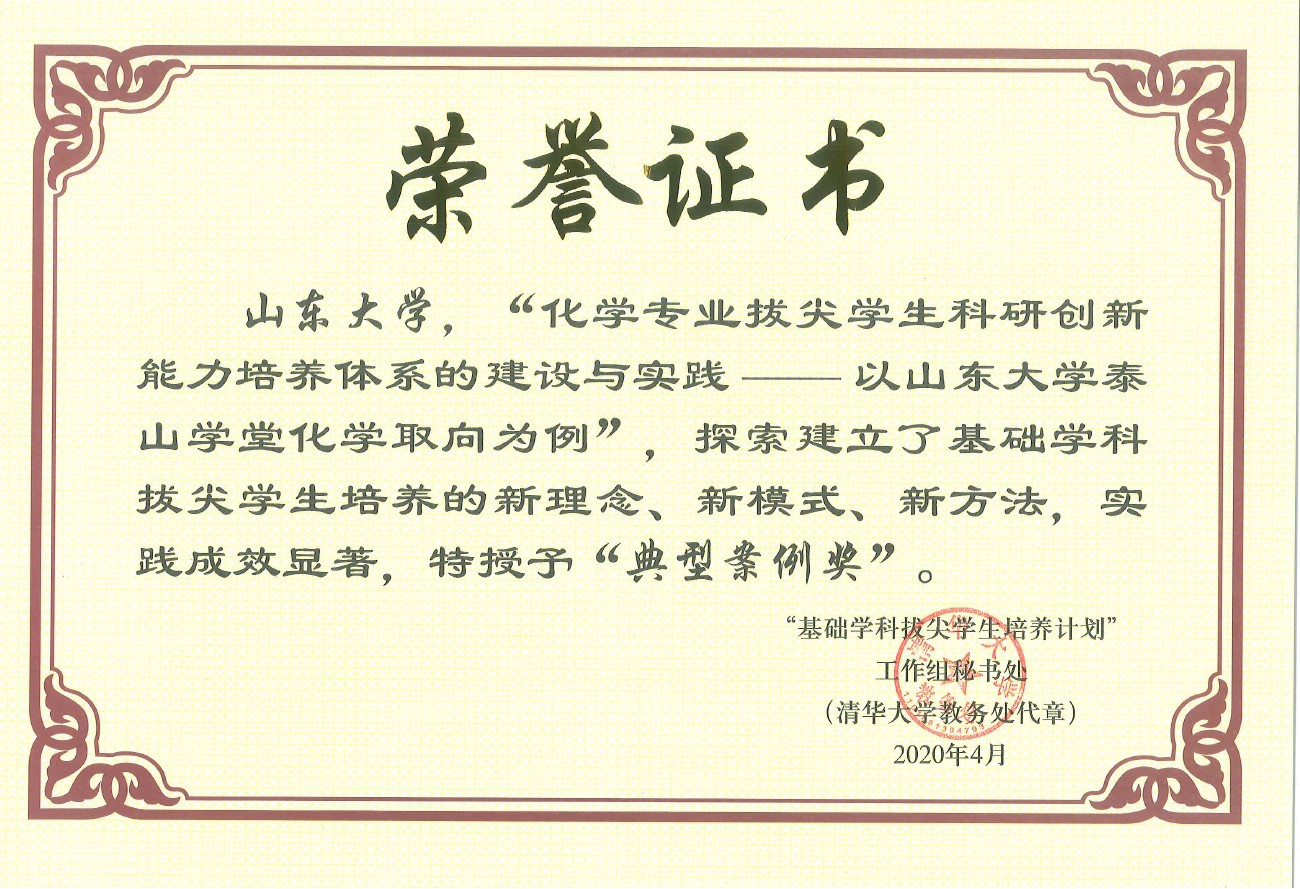 荣誉证书
山东大学，“化学专业拔尖学生科研创新
能力培养体系的建设与实践——以山东大学泰
山学堂化学取向为例”，探索建立了基础学科
拔尖学生培养的新理念、新模式、新方法，实
践成效显著，特授予“典型案例奖”。
“基础学科拔尖学生培养计划”
工作组秘书处
（清华大学教务处代章）
2020年4月
清华大学
教务处